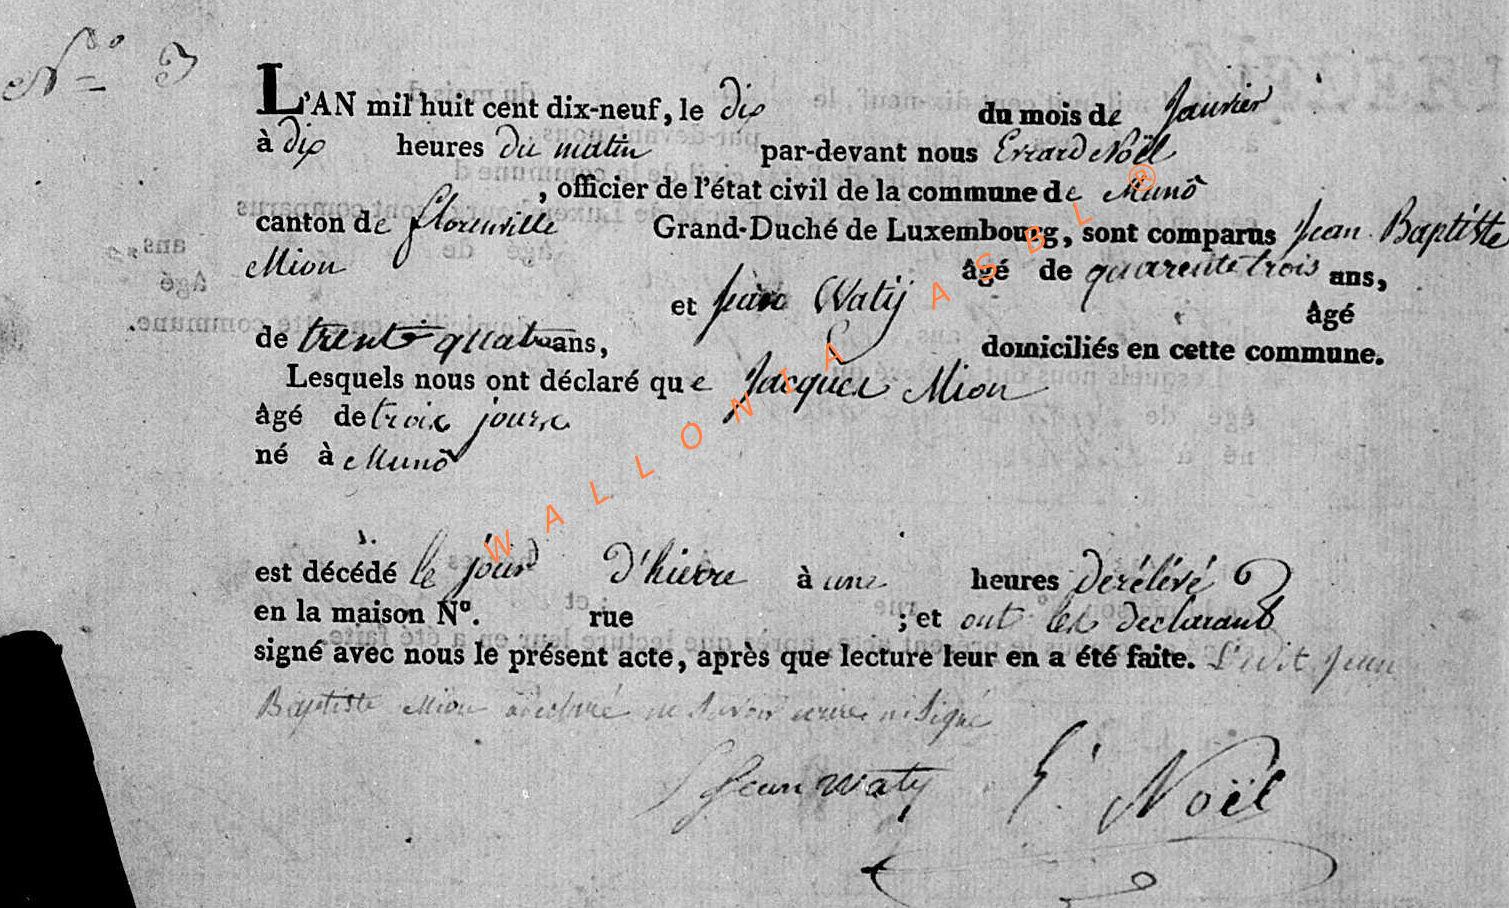 N.ro 3
L'AN mil huit cent dix-neuf, le dix du mois de Janvier
à dix heures du matin par-devant nous Errard Noël
, officier de l'état civil de la commune de Munô
canton de florenville Grand-Duché de Luxembourg, sont comparus Jean Baptiste
Mion âgé de quarente trois ans,
et Jean Watÿ âgé
de trente quatre ans, domiciliés en cette commune.
Lesquels nous ont déclaré que Jacques Mion
âgé de trois jours
né à Munô
est décédé le jour d'hierre à une heures derélévé
en la maison Nº. rue ; et ont les declarant
signé avec nous le présent acte, après que lecture leur en a été faite. Jean
Baptiste Mion a déclaré ne savoir écrire ni signé
Jean watÿ E. Noël
WALLONIA ASBL ®